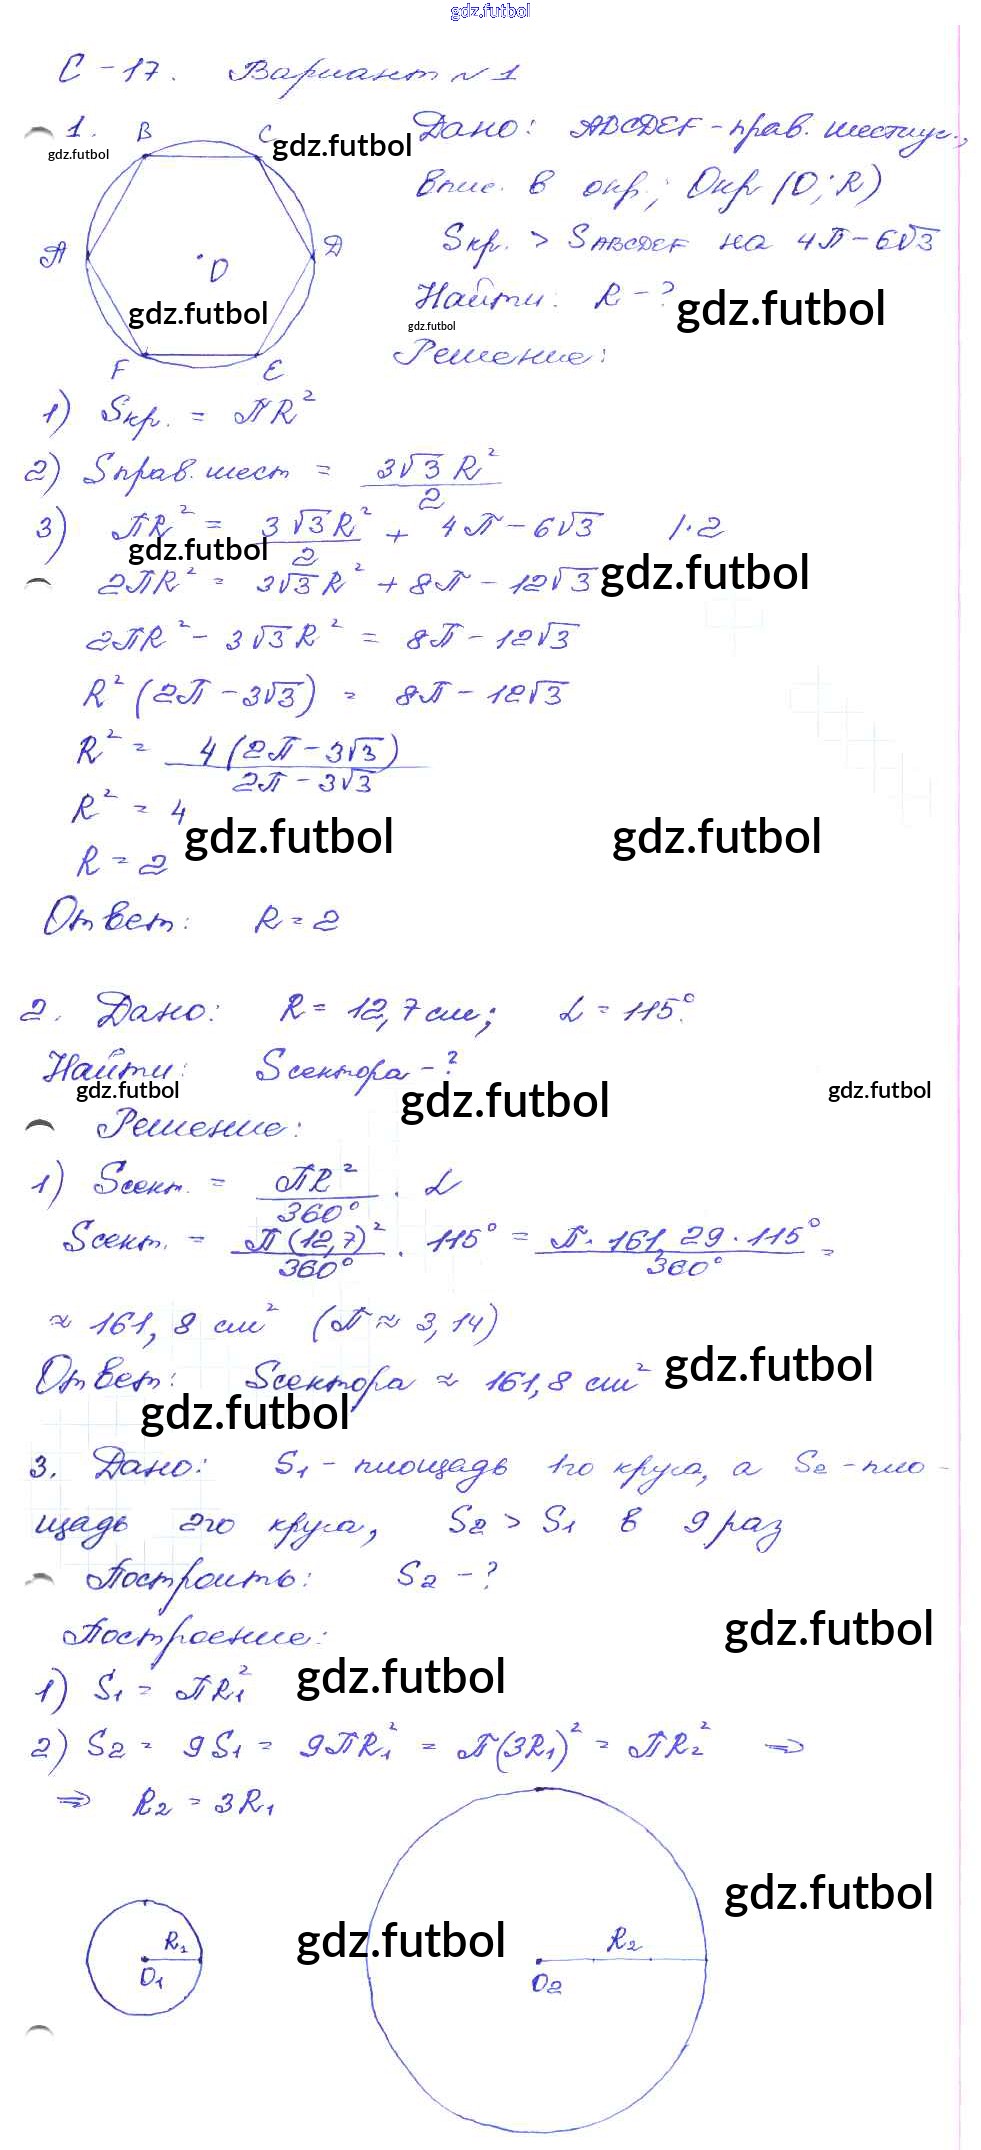 gdz.futbol
С-17. Вариант №1
1. B C gdz.futbol Дано: ABCDEF - прав. шестиуг.,
gdz.futbol
впис. в окр.; Окр (O; R)
A D O Sкр. > SABCDEF на 4π - 6√3
gdz.futbol Найти: R - ? gdz.futbol
gdz.futbol
F E Решение:
1) Sкр. = πR²
2) Sправ.шест = 3√3 R² / 2
3) πR² = 3√3R² / 2 + 4π - 6√3 | · 2
gdz.futbol
2πR² = 3√3R² + 8π - 12√3 gdz.futbol
2πR² - 3√3R² = 8π - 12√3
R² (2π - 3√3) = 8π - 12√3
R² = 4(2π - 3√3) / 2π - 3√3
R² = 4
gdz.futbol gdz.futbol
R = 2
Ответ: R = 2
2. Дано: R = 12,7 см; α = 115°.
Найти: Sсектора - ?
gdz.futbol gdz.futbol gdz.futbol
Решение:
1) Sсект. = πR² / 360° · α
Sсект. = π(12,7)² / 360° · 115° = π · 161,29 · 115° / 360° =
≈ 161,8 см² (π ≈ 3,14)
Ответ: Sсектора ≈ 161,8 см² gdz.futbol
gdz.futbol
3. Дано: S₁ - площадь 1го круга, а S₂ - пло-
щадь 2го круга, S₂ > S₁ в 9 раз
Построить: S₂ - ?
Построение: gdz.futbol
1) S₁ = πR₁² gdz.futbol
2) S₂ = 9S₁ = 9πR₁² = π(3R₁)² = πR₂² ⇒
⇒ R₂ = 3R₁
gdz.futbol
R₁ gdz.futbol R₂
O₁ O₂